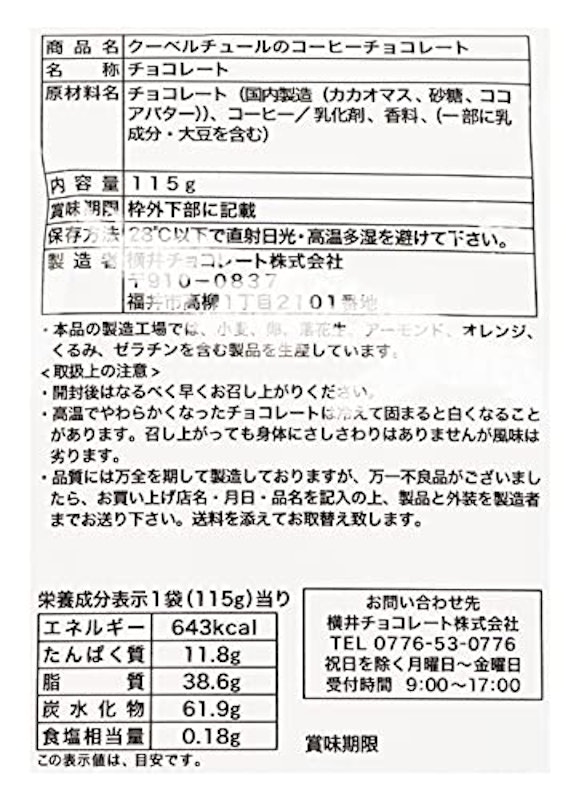 商品名 クーベルチュールのコーヒーチョコレート
名称 チョコレート
原材料名 チョコレート(国内製造(カカオマス、砂糖、ココ
アバター))、コーヒー/乳化剤、香料、(一部に乳
成分・大豆を含む)
内容量 115g
賞味期限 枠外下部に記載
保存方法 28℃以下で直射日光・高温多湿を避けて下さい。
製造者 横井チョコレート株式会社
〒910-0837
福井市高柳1丁目2101番地
・本品の製造工場では、小麦、卵、落花生、アーモンド、オレンジ、
くるみ、ゼラチンを含む製品を生産しています。
<取扱上の注意>
・開封後はなるべく早くお召し上がりください。
・高温でやわらかくなったチョコレートは冷えて固まると白くなること
があります。召し上がっても身体にさしさわりはありませんが風味は
劣ります。
・品質には万全を期して製造しておりますが、万一不良品がございまし
たら、お買い上げ店名・月日・品名を記入の上、製品と外装を製造者
までお送り下さい。送料を添えてお取替え致します。
栄養成分表示1袋(115g)当り
エネルギー 643kcal
たんぱく質 11.8g
脂質 38.6g
炭水化物 61.9g
食塩相当量 0.18g
この表示値は、目安です。
お問い合わせ先
横井チョコレート株式会社
TEL 0776-53-0776
祝日を除く月曜日〜金曜日
受付時間 9:00〜17:00
賞味期限